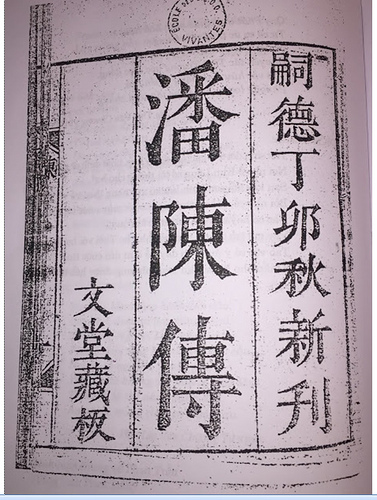 嗣德丁卯秋新刊
潘陳傳
文堂藏板
VIVANTES